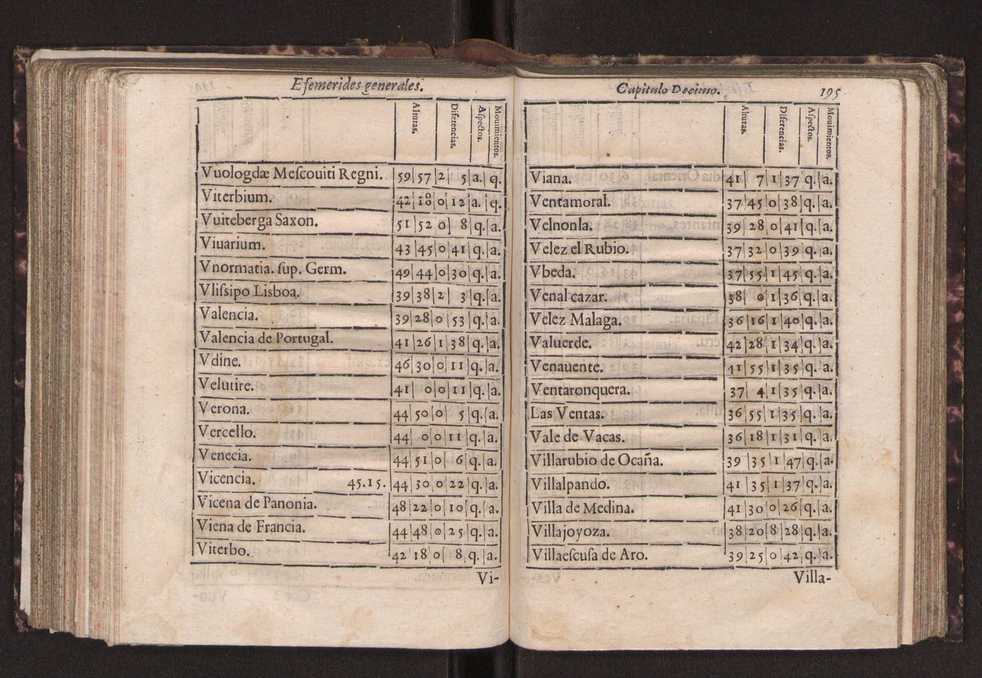 Efemerides generales.
Alturas. Diferencias. Aspectos. Mouimientos.
Vuologdæ Meſcouiti Regni. 59 57 2 5 a. q.
Viterbium. 42 18 0 12 a. q.
Vuiteberga Saxon. 51 52 0 8 q. a.
Viuarium. 43 45 0 41 q. a.
Vnormatia. ſup. Germ. 49 44 0 30 q. a.
Vliſsipo Lisboa. 39 38 2 3 q. a.
Valencia. 39 28 0 53 q. a.
Valencia de Portugal. 41 26 1 38 q. a.
Vdine. 46 30 0 11 q. a.
Velutire. 41 0 0 11 q. a.
Verona. 44 50 0 5 q. a.
Vercello. 44 0 0 11 q. a.
Venecia. 44 51 0 6 q. a.
Vicencia. 45.15. 44 30 0 22 q. a.
Vicena de Panonia. 48 22 0 10 q. a.
Viena de Francia. 44 48 0 25 q. a.
Viterbo. 42 18 0 8 q. a.
Vi-
Capitulo Decimo. 195
Alturas. Diferencias. Aſpectos. Mouimientos.
Viana. 41 7 1 37 q. a.
Ventamoral. 37 45 0 38 q. a.
Velnonla. 39 28 0 41 q. a.
Velez el Rubio. 37 32 0 39 q. a.
Vbeda. 37 55 1 45 q. a.
Venal cazar. 38 0 1 36 q. a.
Velez Malaga. 36 16 1 40 q. a.
Valuerde. 42 28 1 34 q. a.
Venauente. 41 55 1 35 q. a.
Ventaronquera. 37 4 1 35 q. a.
Las Ventas. 36 55 1 35 q. a.
Vale de Vacas. 36 18 1 31 q. a.
Villarubio de Ocaña. 39 35 1 47 q. a.
Villalpando. 41 35 1 37 q. a.
Villa de Medina. 41 30 0 26 q. a.
Villajoyoza. 38 20 8 28 q. a.
Villaeſcuſa de Aro. 39 25 0 42 q. a.
Villa-